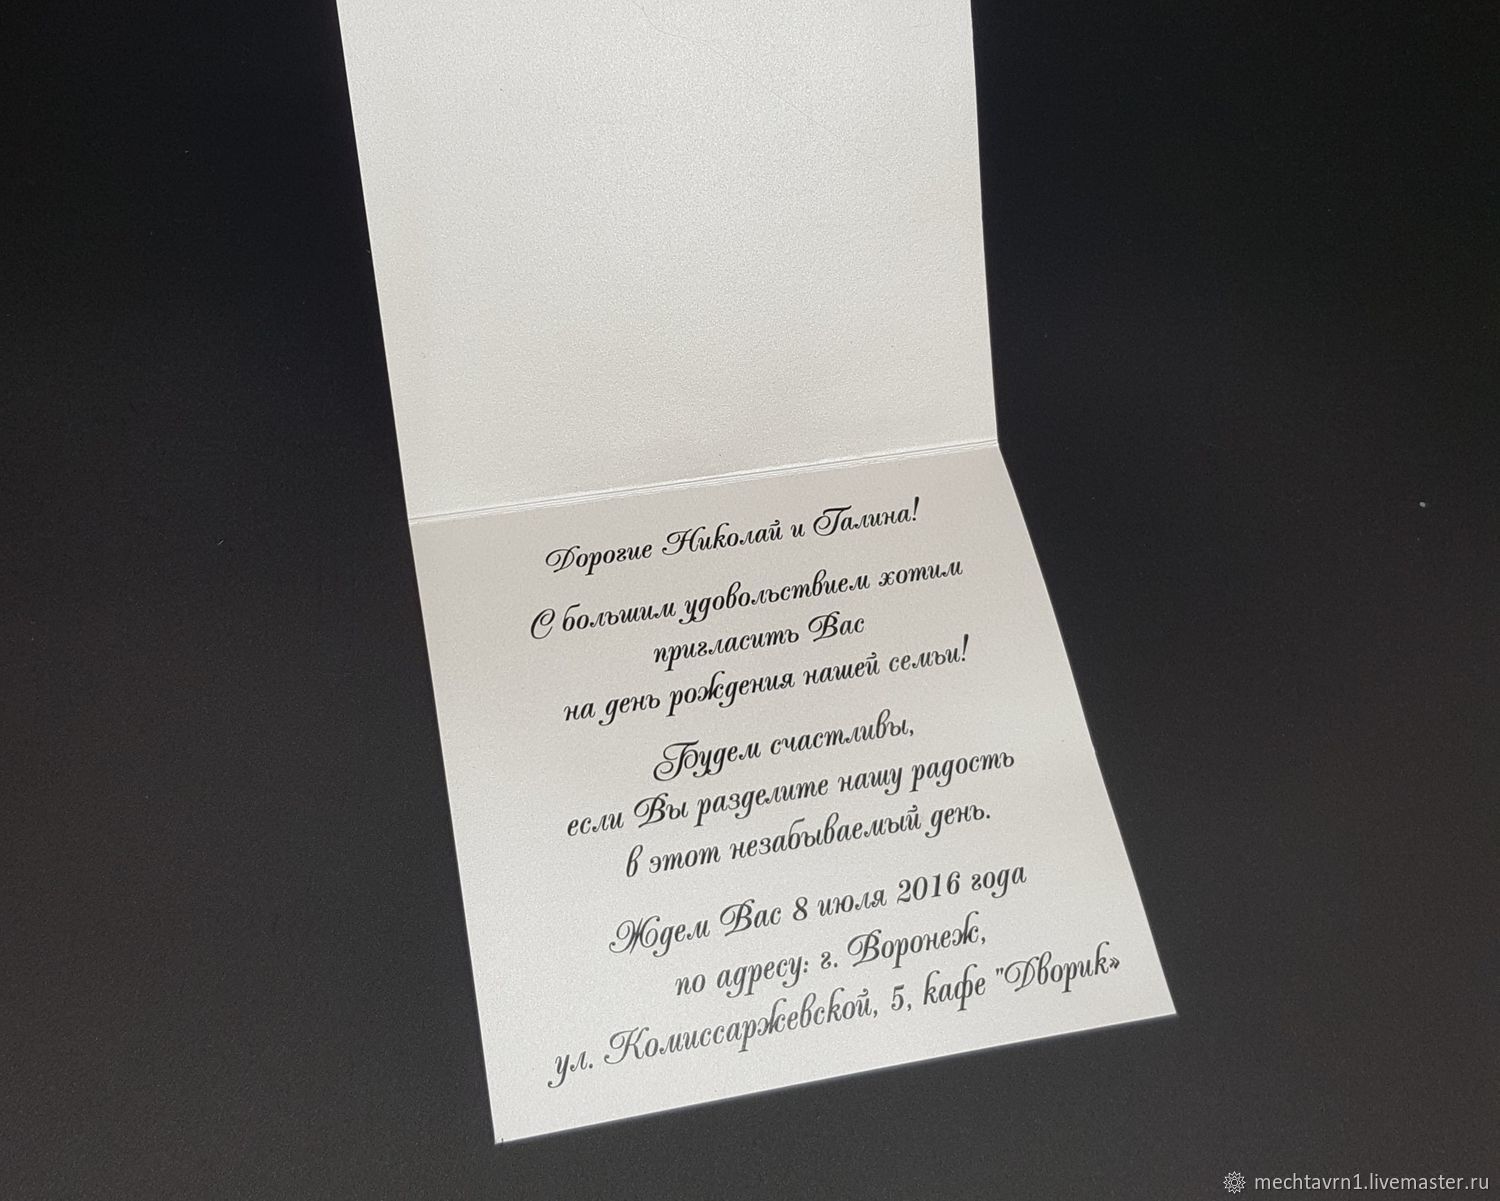 Дорогие Николай и Галина!
С большим удовольствием хотим
пригласить Вас
на день рождения нашей семьи!
Будем счастливы,
если Вы разделите нашу радость
в этот незабываемый день.
Ждем Вас 8 июля 2016 года
по адресу: г. Воронеж,
ул. Комиссаржевской, 5, кафе "Дворик»
mechtavrn1.livemaster.ru